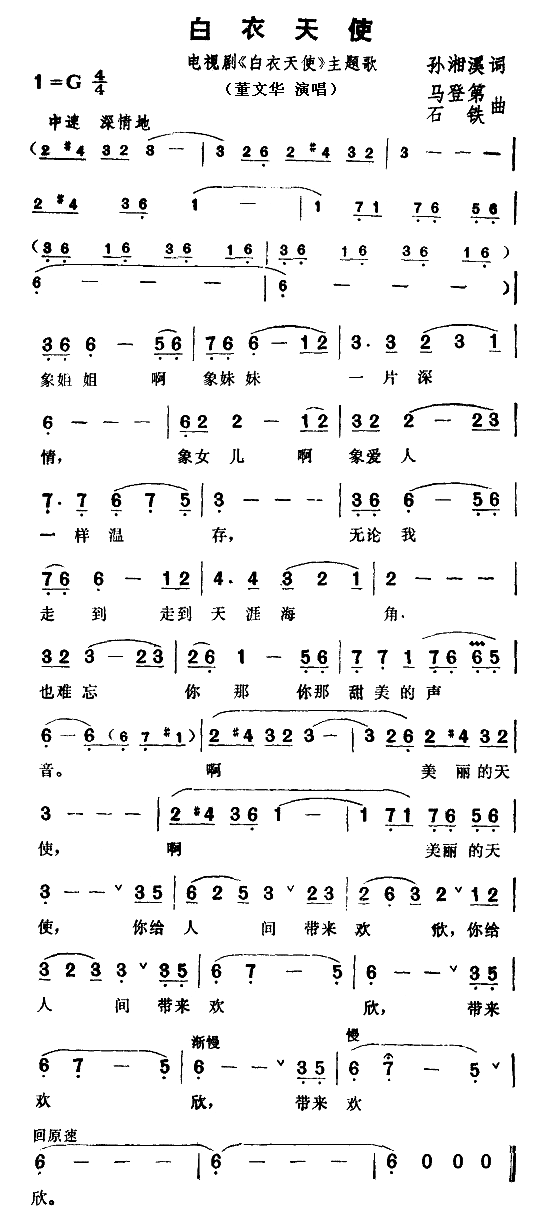 白衣天使
电视剧《白衣天使》主题歌
孙湘溪 词
1=G 4/4
（董文华 演唱）
马登第
石铁 曲
中速 深情地
(2 #4 3 2 3 — | 3 3 2 6 2 #4 3 2 | 3 — — — |
2 #4 3 6 1 — | 1 7 1 7 6 5 6 |
(3 6 1 6 3 6 1 6 | 3 6 1 6 3 6 1 6 )
6 — — — | 6 — — — ) |
3 6 6 — 5 6 | 7 6 6 — 1 2 | 3 . 3 2 3 1 |
象姐姐 啊 象妹妹 一片深
6 — — — | 6 2 2 — 1 2 | 3 2 2 — 2 3 |
情， 象女儿 啊 象爱人
7 . 7 6 7 5 | 3 — — — | 3 6 6 — 5 6 |
一样温 存， 无论我
7 6 6 — 1 2 | 4 . 4 3 2 1 | 2 — — — |
走到 走到天涯海 角．
3 2 3 — 2 3 | 2 6 1 — 5 6 | 7 7 1 7 6 6 5 |
也难忘 你那 你那甜美的声
6 — 6 ( 6 7 #1 ) | 2 #4 3 2 3 — | 3 2 6 2 #4 3 2 |
音。 啊 美丽的天
3 — — — | 2 #4 3 6 1 — | 1 7 1 7 6 5 6 |
使， 啊 美丽的天
3 — — ˅ 3 5 | 6 2 5 3 ˅ 2 3 | 2 6 3 2 ˅ 1 2 |
使， 你给人 间 带来欢 欣，你给
3 2 3 3 ˅ 3 5 | 6 7 — 5 | 6 — — ˅ 3 5 |
人 间 带来欢 欣， 带来
渐慢 慢
6 7 — 5 | 6 — — ˅ 3 5 | 6 7 — 5 ˅ |
欢 欣， 带来欢
回原速
6 — — — | 6 — — — | 6 0 0 0 ‖
欣。